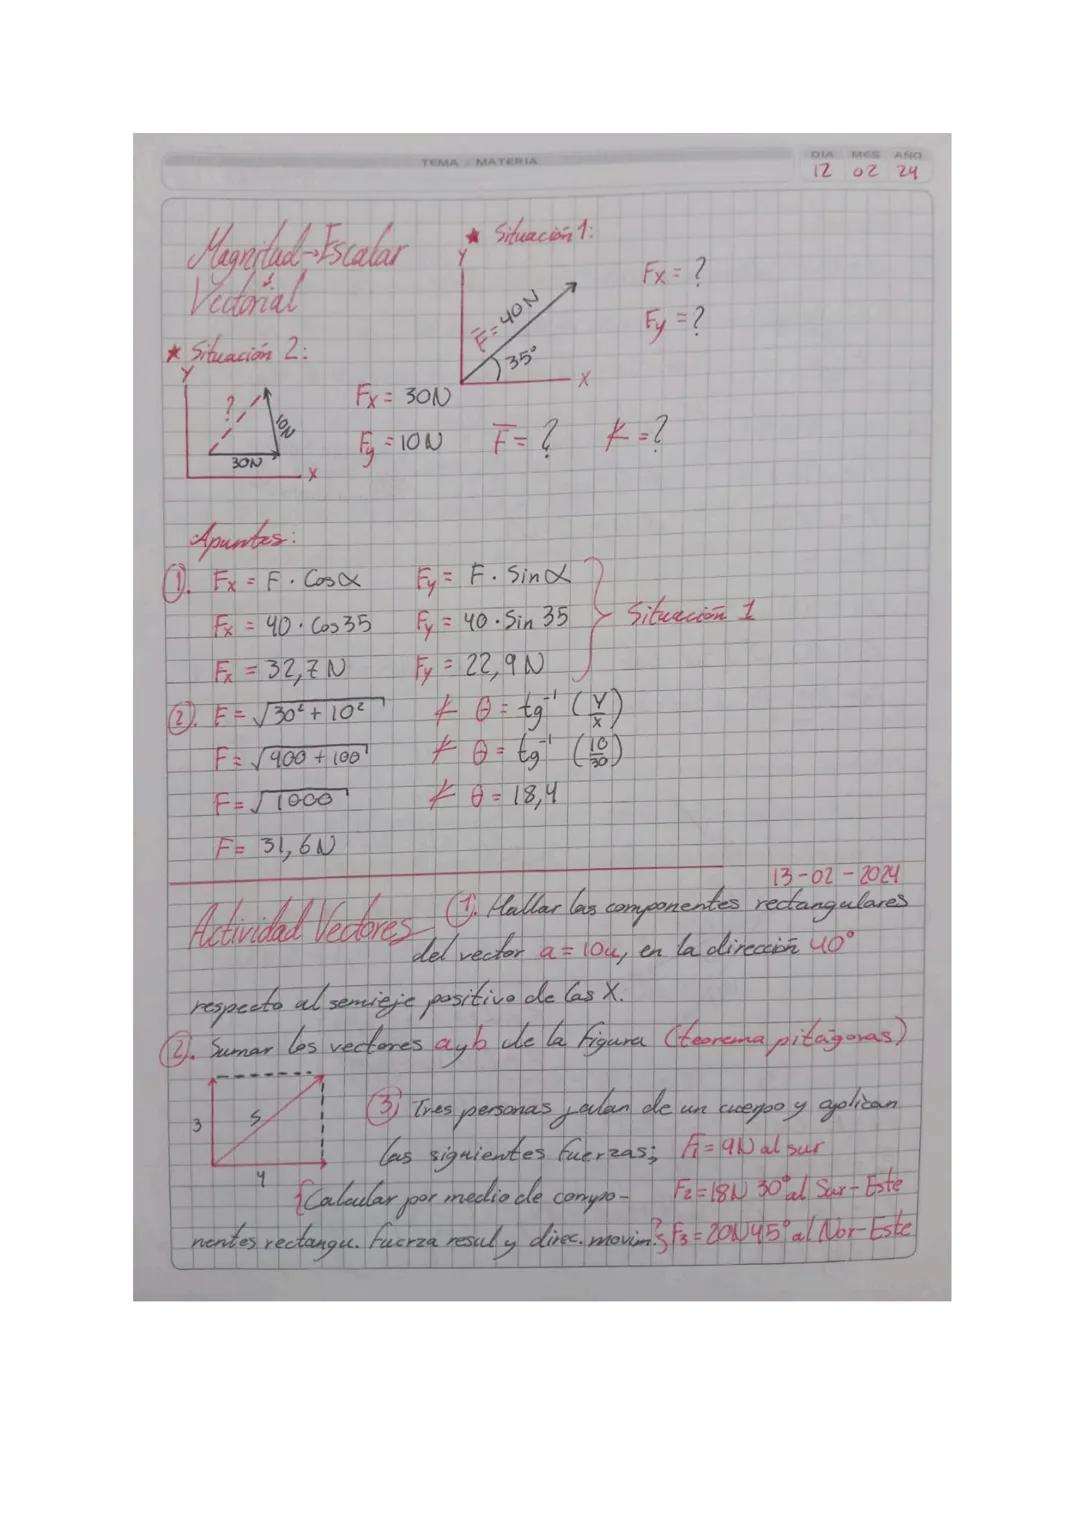 TEMA / MATERIA
DIA MES AÑO
12 02 24
Magnitud→Escalar
Vectorial
★ Situación 1:
Y
F = 40N
35°
X
Fx = ?
Fy = ?
★ Situación 2:
Y
?
10N
30N
X
Fx = 30N
Fy = 10N F = ? ∡ = ?
Apuntes:
①. Fx = F . Cosα Fy = F . Sinα
Fx = 40 . Cos35 Fy = 40 . Sin 35 } Situación 1
Fx = 32,7N Fy = 22,9N
②. F = √30² + 10² ∡ θ = tg⁻¹ (Y/X)
F = √900 + 100 ∡ θ = tg⁻¹ (10/30)
F = √1000 ∡ θ = 18,4
F = 31,6N
13-02-2024
Actividad Vectores ①. Hallar las componentes rectangulares
del vector a = 10u, en la dirección 40°
respecto al semieje positivo de las X.
②. Sumar los vectores a y b de la figura (teorema pitágoras)
3
5
4
③ Tres personas jalan de un cuerpo y aplican
las siguientes fuerzas; F1 = 9N al sur
{Calcular por medio de compo- F2 = 18N 30° al Sur-Este
nentes rectangu. fuerza resul y direc. movim.} F3 = 20N 45° al Nor-Este